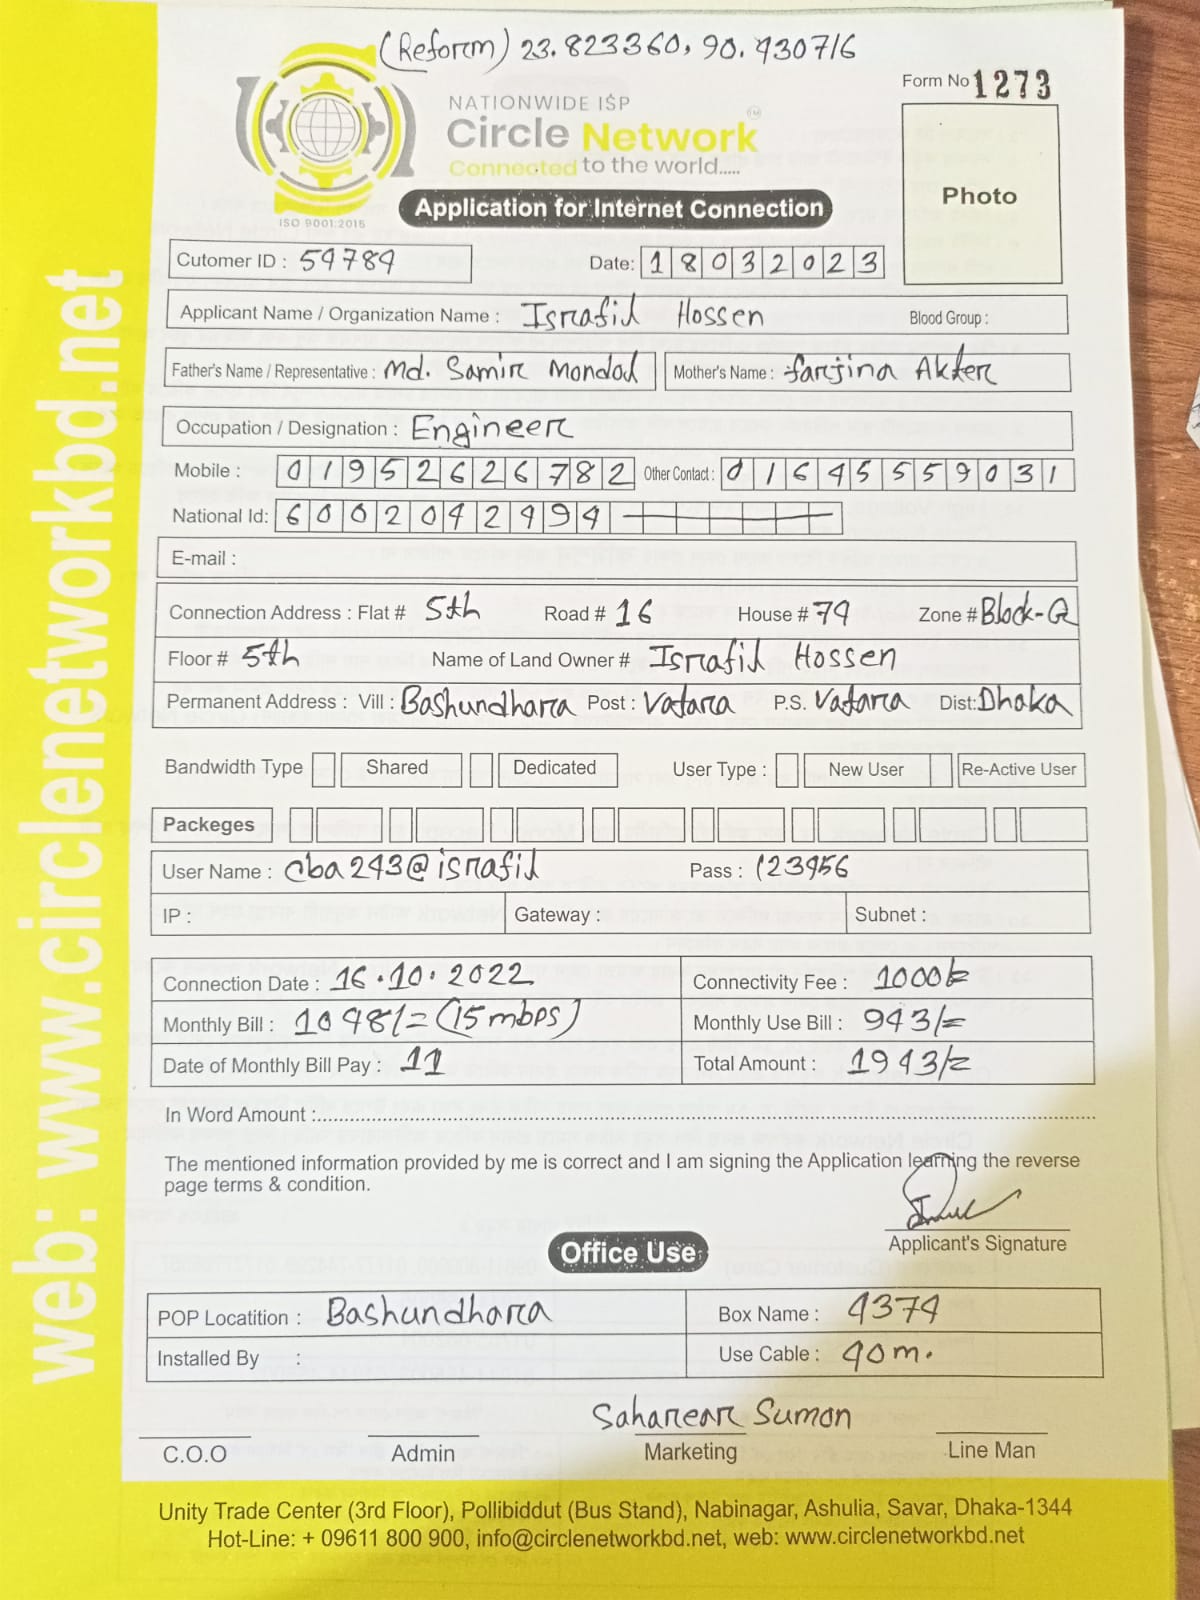 (Reform) 23.823360, 90.430716
Form No 1273
NATIONWIDE ISP
Circle Network
Connected to the world.....
ISO 9001:2015
Application for Internet Connection
Photo
Cutomer ID : 54784
Date: 18032023
Applicant Name / Organization Name : Israfil Hossen Blood Group :
Father's Name / Representative : Md. Samir Mondal Mother's Name : Farjina Akter
Occupation / Designation : Engineer
Mobile : 01952626782 Other Contact : 01645559031
National Id: 6002042494
E-mail :
Connection Address : Flat # 5th Road # 16 House # 74 Zone # Block-G
Floor # 5th Name of Land Owner # Israfil Hossen
Permanent Address : Vill : Bashundhara Post : Vatara P.S. Vatara Dist: Dhaka
Bandwidth Type Shared Dedicated User Type : New User Re-Active User
Packeges
User Name : cba243@israfil Pass : 123456
IP : Gateway : Subnet :
Connection Date : 16.10.2022 Connectivity Fee : 1000/=
Monthly Bill : 1048/= (15 mbps) Monthly Use Bill : 943/=
Date of Monthly Bill Pay : 11 Total Amount : 1943/=
In Word Amount :
The mentioned information provided by me is correct and I am signing the Application learning the reverse
page terms & condition.
Applicant's Signature
Office Use
POP Locatition : Bashundhara Box Name : 4374
Installed By : Use Cable : 40m.
Saharear Sumon
C.O.O Admin Marketing Line Man
Unity Trade Center (3rd Floor), Pollibiddut (Bus Stand), Nabinagar, Ashulia, Savar, Dhaka-1344
Hot-Line: + 09611 800 900, info@circlenetworkbd.net, web: www.circlenetworkbd.net
web: www.circlenetworkbd.net